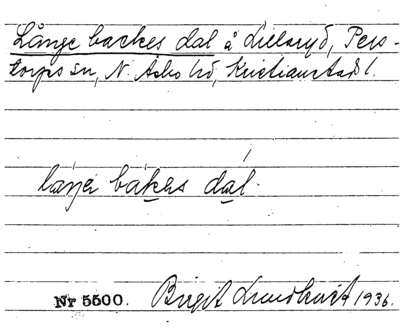 Långe backes dal å Lillaryd, Pers-
torps sn, N. Åsbo hd, Kristianstads l.
låŋa bákas dál.
Nr 5500. Birgit Lundkvist 1936.